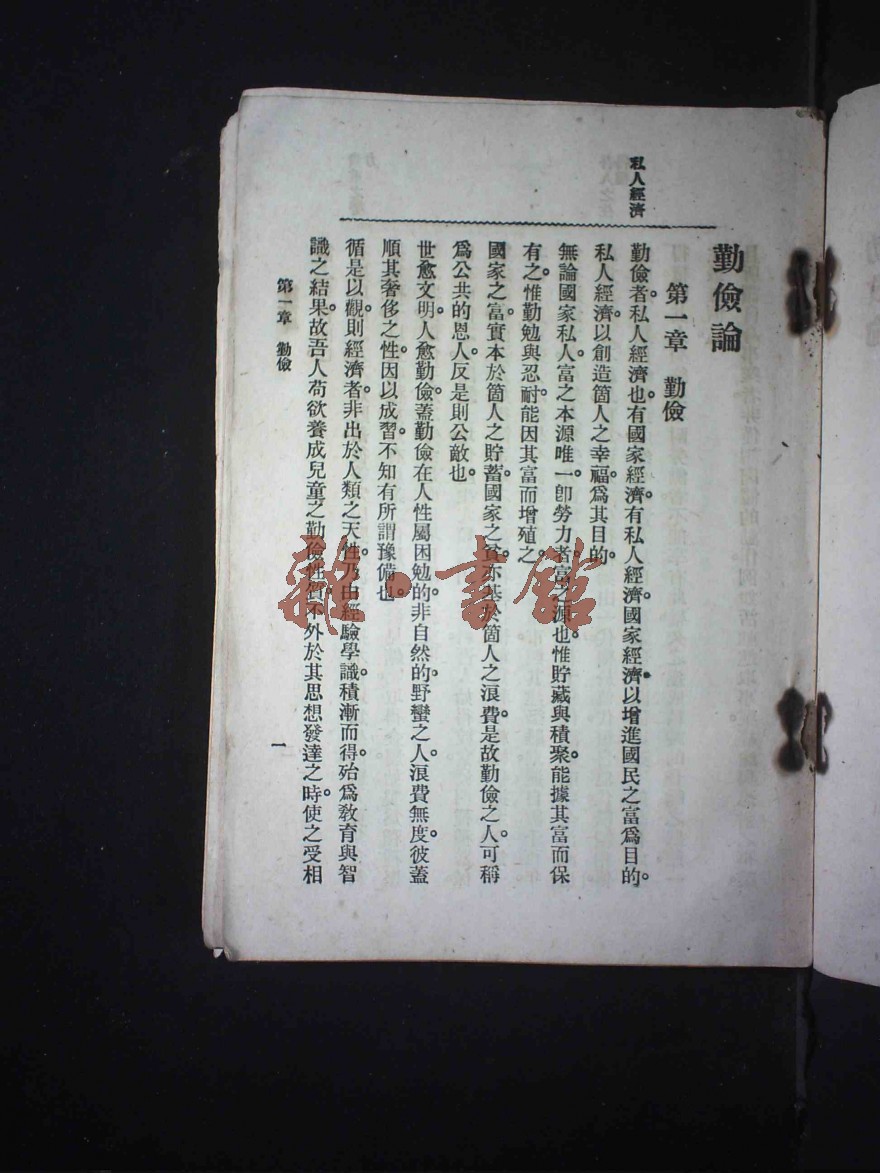 私人經濟
勤儉論
第一章　勤儉
勤儉者。私人經濟也。有國家經濟。有私人經濟。國家經濟。以增進國民之富爲目的。
私人經濟。以創造箇人之幸福。爲其目的。
無論國家私人。富之本源唯一。卽勞力者。富之源也。惟貯藏與積聚。能據其富而保
有之。惟勤勉與忍耐。能因其富而增殖之。
國家之富。實本於箇人之貯蓄。國家之貧。亦基於箇人之浪費。是故勤儉之人。可稱
爲公共的恩人。反是則公敵也。
世愈文明。人愈勤儉。蓋勤儉在人性屬困勉的。非自然的。野蠻之人。浪費無度。彼蓋
順其奢侈之性。因以成習。不知有所謂豫備也。
循是以觀。則經濟者。非出於人類之天性。乃由經驗學識。積漸而得。殆爲敎育與智
識之結果。故吾人苟欲養成兒童之勤儉性質。不外於其思想發達之時。使之受相
第一章　勤儉
一
雜·書館